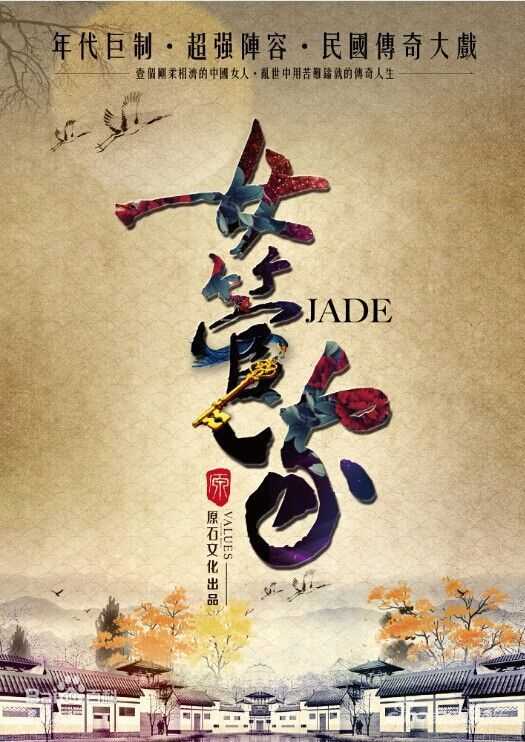 年代巨制·超强陣容·民國傳奇大戲
壹個剛柔相濟的中國女人·亂世中用苦難鑄就的傳奇人生
女管家
JADE
原
VALUES
原石文化出品
Baidu百科